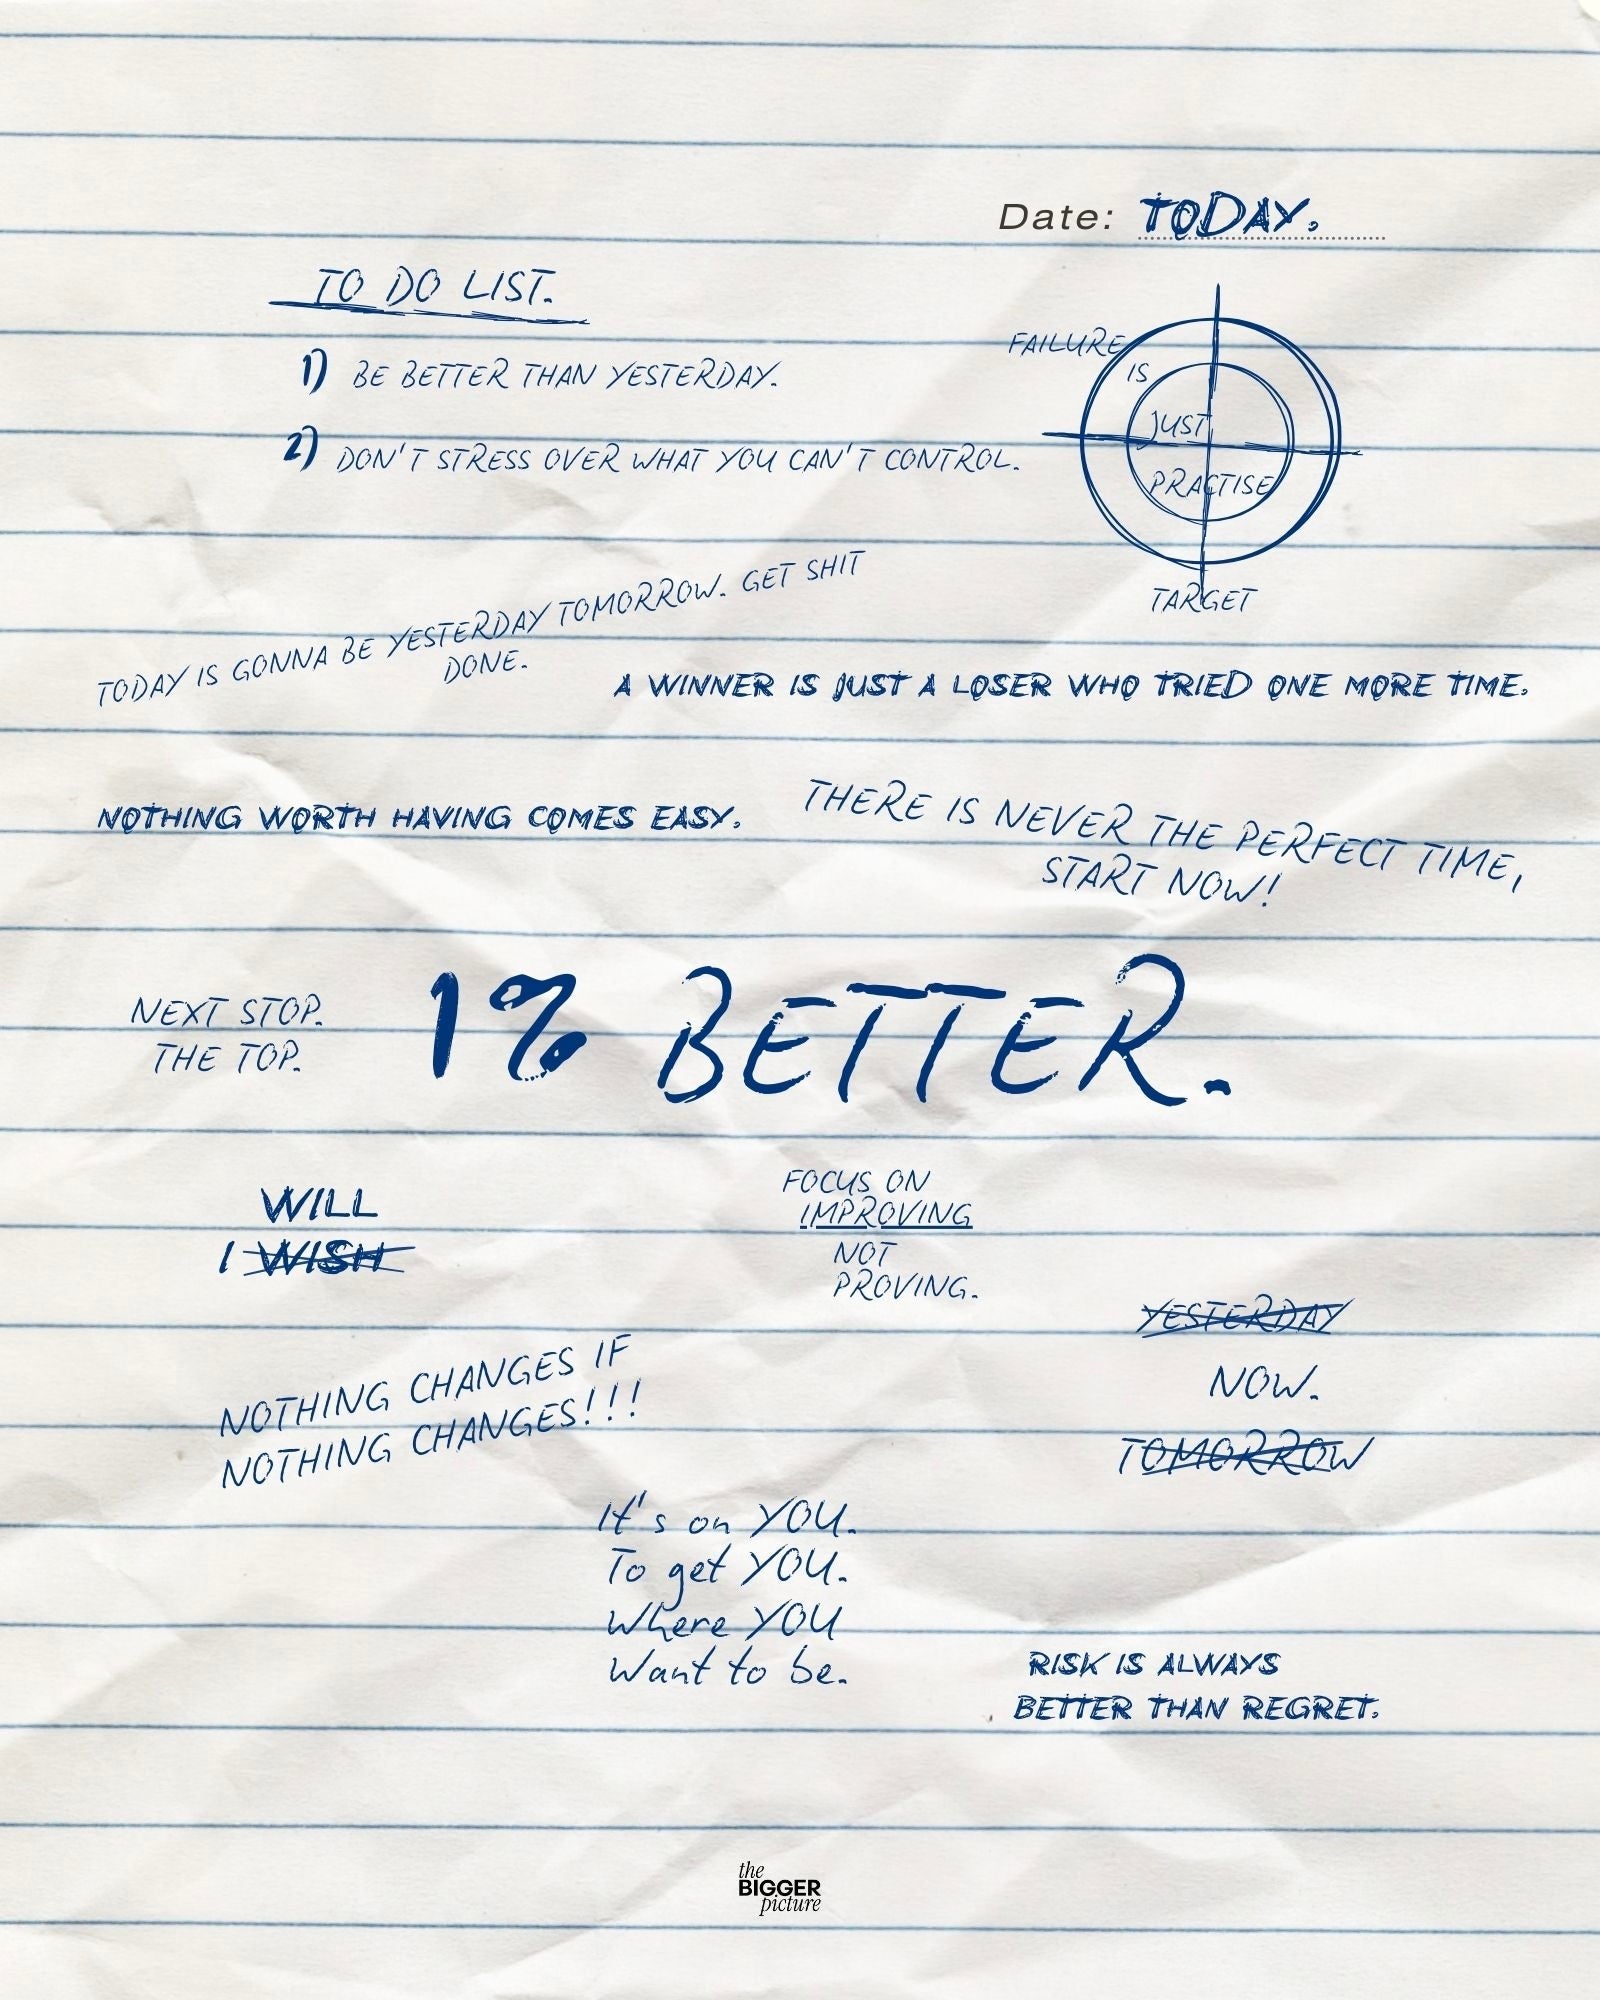 Date: TODAY.
TO DO LIST.
1) BE BETTER THAN YESTERDAY.
2) DON'T STRESS OVER WHAT YOU CAN'T CONTROL.
FAILURE
IS
JUST
PRACTISE
TARGET
TODAY IS GONNA BE YESTERDAY TOMORROW. GET SHIT
DONE.
A WINNER IS JUST A LOSER WHO TRIED ONE MORE TIME.
NOTHING WORTH HAVING COMES EASY.
THERE IS NEVER THE PERFECT TIME,
START NOW!
NEXT STOP.
THE TOP.
1% BETTER.
WILL
I WISH
FOCUS ON
IMPROVING
NOT
PROVING.
YESTERDAY
NOW.
TOMORROW
NOTHING CHANGES IF
NOTHING CHANGES!!!
It's on YOU.
To get YOU.
Where YOU
Want to be.
RISK IS ALWAYS
BETTER THAN REGRET.
the
BIGGER
picture